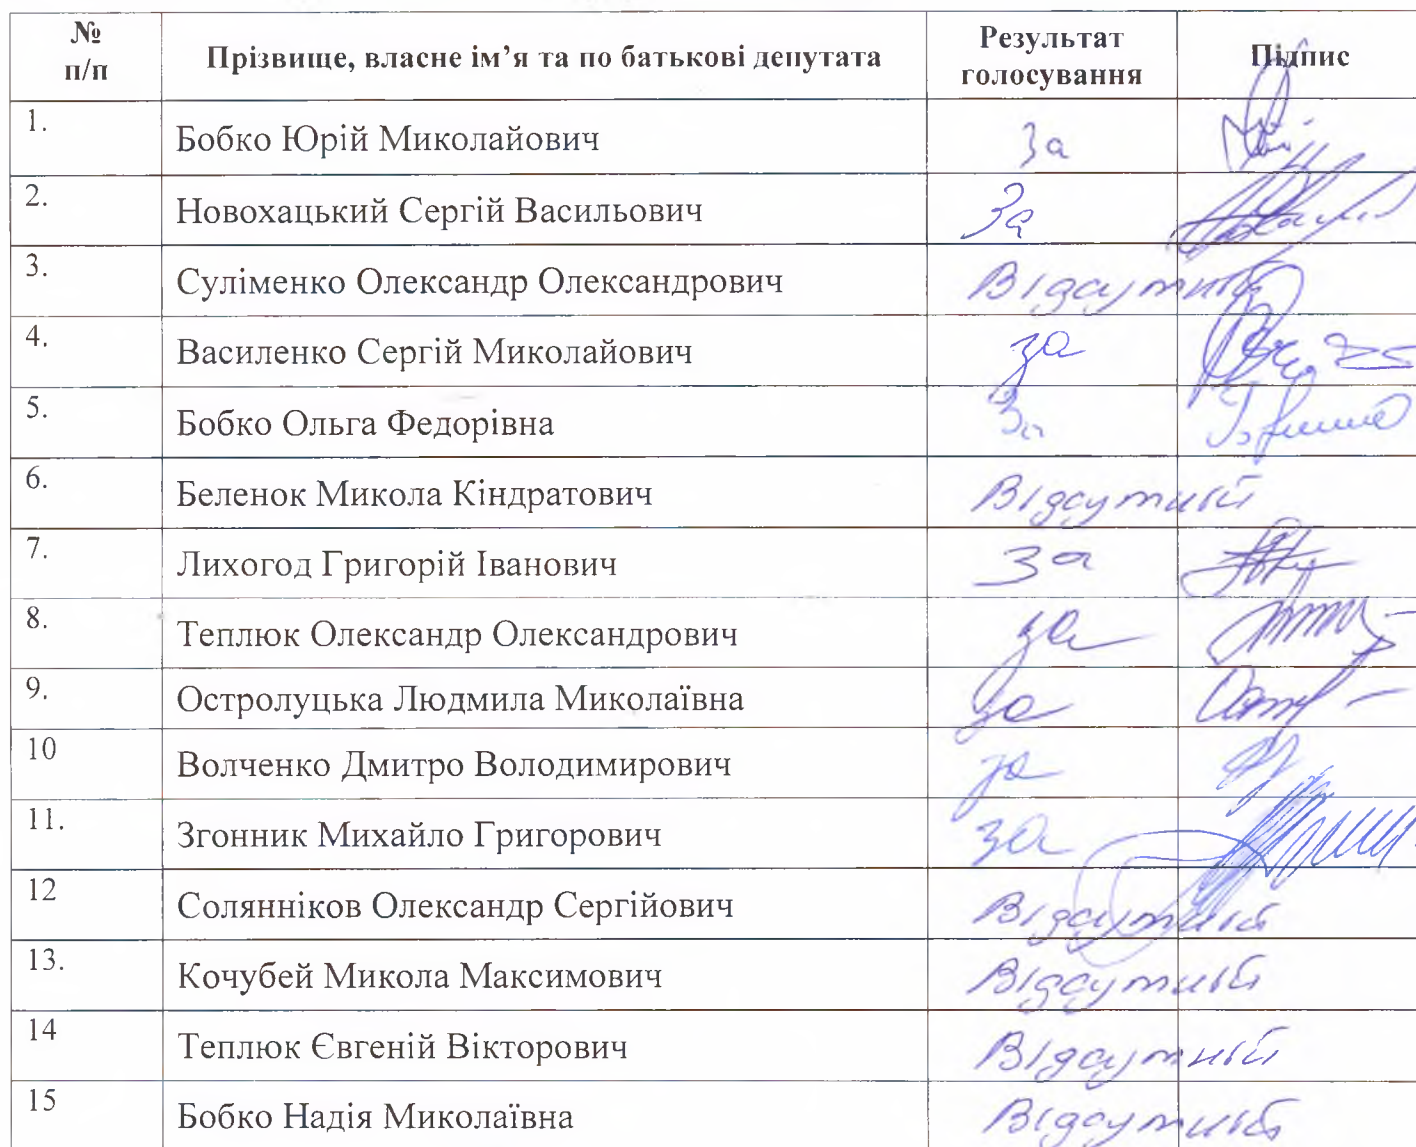 № п/п Прізвище, власне ім’я та по батькові депутата Результат голосування Підпис
1. Бобко Юрій Миколайович За
2. Новохацький Сергій Васильович За
3. Суліменко Олександр Олександрович Відсутній
4. Василенко Сергій Миколайович за
5. Бобко Ольга Федорівна За
6. Беленок Микола Кіндратович Відсутній
7. Лихогод Григорій Іванович За
8. Теплюк Олександр Олександрович за
9. Остролуцька Людмила Миколаївна за
10 Волченко Дмитро Володимирович за
11. Згонник Михайло Григорович за
12 Солянніков Олександр Сергійович Відсутній
13. Кочубей Микола Максимович Відсутній
14 Теплюк Євгеній Вікторович Відсутній
15 Бобко Надія Миколаївна Відсутній